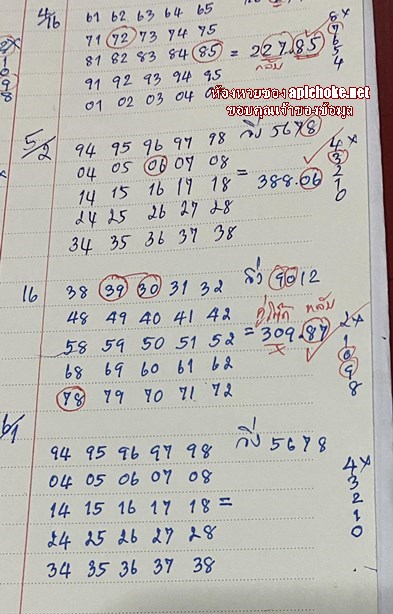 4/16
61 62 63 64 65
71 72 73 74 75
81 82 83 84 85 = 227.85
กลับ
91 92 93 94 95
01 02 03 04
8x
7
6
5
4
ห้องหวยซอง apichoke.net
ขอบคุณเจ้าของข้อมูล
5/2
94 95 96 97 98 วิ่ง 5678
04 05 06 07 08
14 15 16 17 18 = 388.06
24 25 26 27 28
34 35 36 37 38
4x
3
2
1
0
16
38 39 30 31 32 วิ่ง 9012
48 49 40 41 42 กลับ
58 59 50 51 52 = 309.87
68 69 60 61 62
78 79 70 71 72
2x
1
0
9
8
94 95 96 97 98 วิ่ง 5678
04 05 06 07 08
14 15 16 17 18 =
24 25 26 27 28
34 35 36 37 38
4x
3
2
1
0